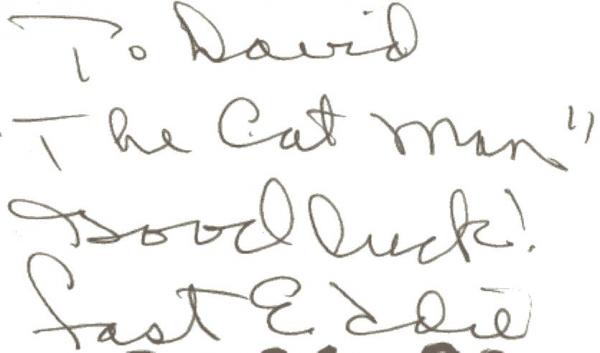 To David
The Cat Man"
Good luck!
Fast Eddie